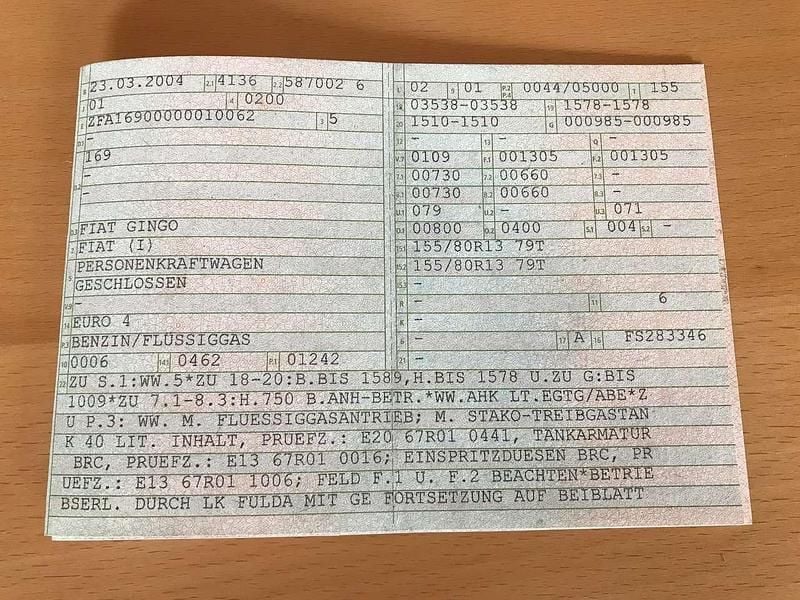 B 23.03.2004 2.1 4136 2.2 587002 6
J 01 4 0200
E ZFA16900000010062 3 5
D.1 -
169
D.2 -
-
D.3 FIAT GINGO
2 FIAT (I)
5 PERSONENKRAFTWAGEN
GESCHLOSSEN
V.9 -
14 EURO 4
P.3 BENZIN/FLÜSSIGGAS
10 0006 14.1 0462 P.1 01242
L 02 9 01 P.2 P.4 0044/05000 T 155
18 03538-03538 19 1578-1578
20 1510-1510 G 000985-000985
12 - 13 - Q -
V.7 0109 F.1 001305 F.2 001305
7.1 00730 7.2 00660 7.3 -
8.1 00730 8.2 00660 8.3 -
U.1 079 U.2 - U.3 071
O.1 00800 O.2 0400 S.1 004 S.2 -
15.1 155/80R13 79T
15.2 155/80R13 79T
15.3 -
R - 11 6
K -
6 - 17 A 16 FS283346
21 -
22 ZU S.1:WW.5*ZU 18-20:B.BIS 1589,H.BIS 1578 U.ZU G:BIS
1009*ZU 7.1-8.3:H.750 B.ANH-BETR.*WW.AHK LT.EGTG/ABE*Z
U P.3: WW. M. FLUESSIGGASANTRIEB; M. STAKO-TREIBGASTAN
K 40 LIT. INHALT, PRUEFZ.: E20 67R01 0441, TANKARMATUR
BRC, PRUEFZ.: E13 67R01 0016; EINSPRITZDUESEN BRC, PR
UEFZ.: E13 67R01 1006; FELD F.1 U. F.2 BEACHTEN*BETRIE
BSERL. DURCH LK FULDA MIT GE FORTSETZUNG AUF BEIBLATT